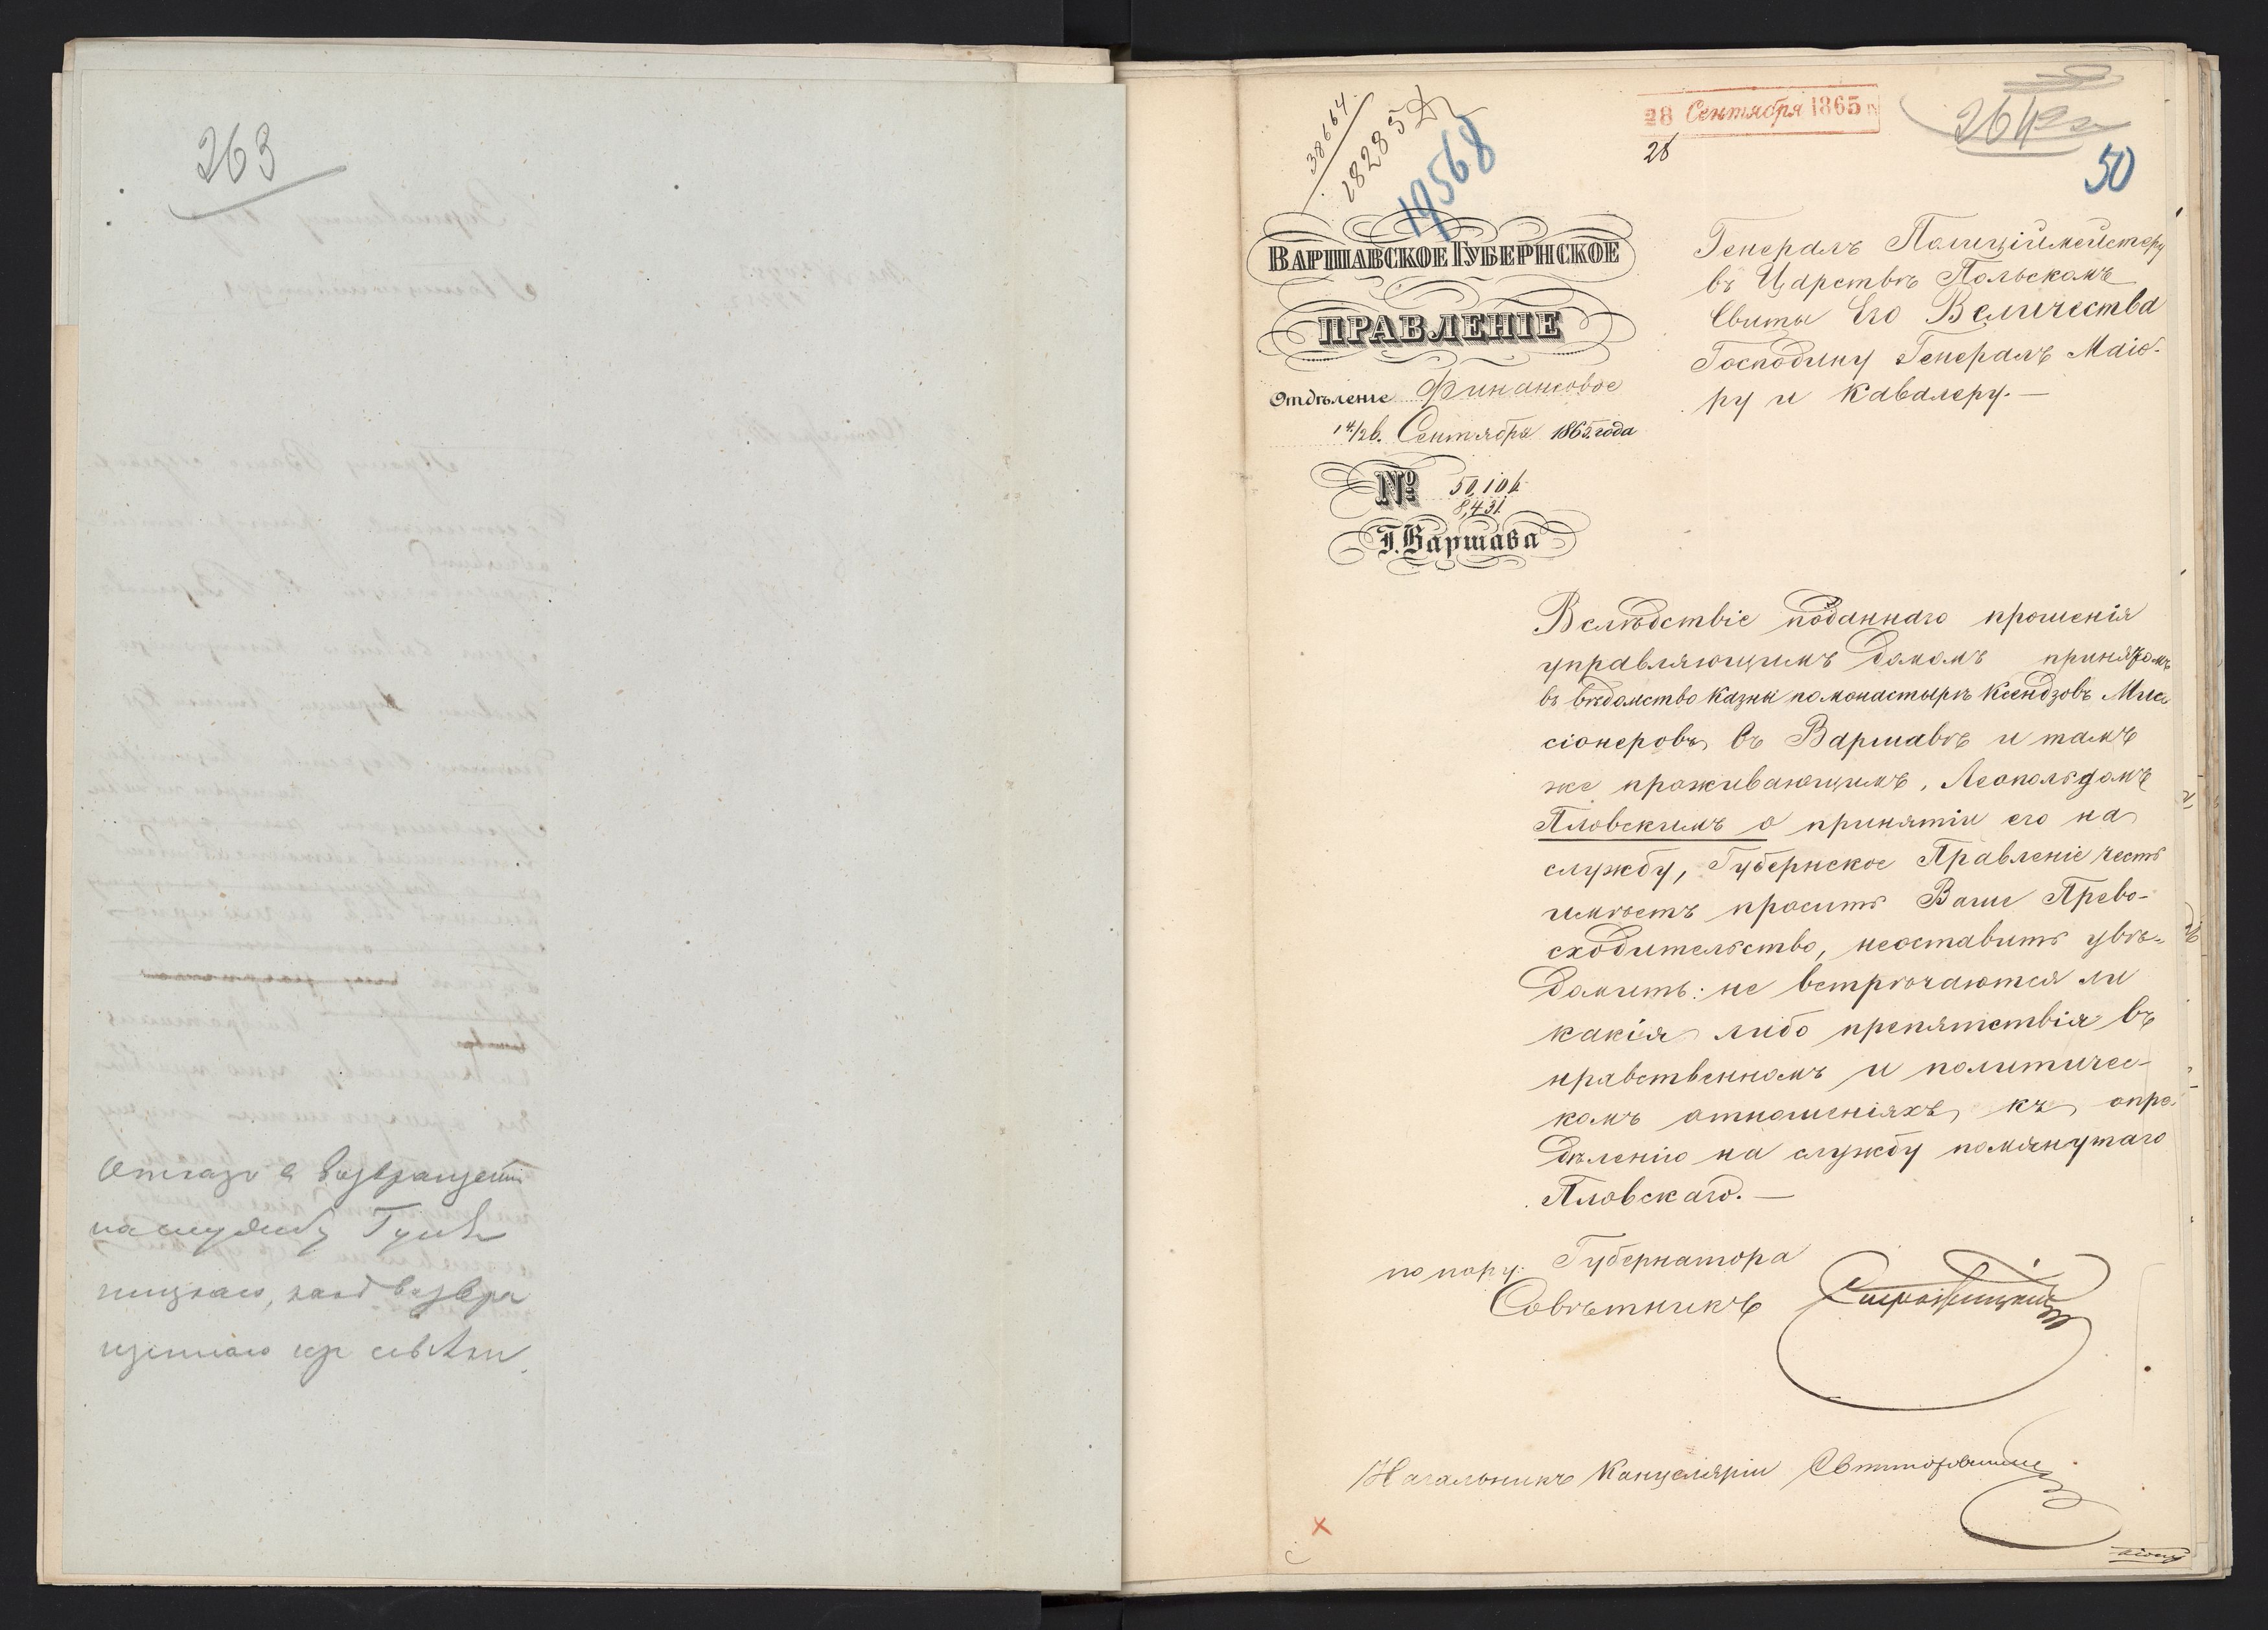 263
Отказъ въ возвращеніи
на службу
ницкаго, какъ возвра
щеннаго изъ
38664
18285
19568
28 Сентября 1865
28
50
ВАРШАВСКОЕ ГУБЕРНСКОЕ
ПРАВЛЕНІЕ
Отдѣленіе Финансовое
14/26. Сентября 1865 года
№ 50,106
8,431.
Г. Варшава
Генералъ Полиціймейстеру
въ Царствѣ Польскомъ
Свиты Его Величества
Господину Генералъ Маіо-
ру и Кавалеру. —
Вслѣдствіе поданнаго прошенія
управляющимъ домомъ принятомъ
въ вѣдомство Казны по монастырѣ Ксендзовъ Мис
сіонеровъ въ Варшавѣ и тамъ
же проживающимъ, Леопольдомъ
Пловскимъ о принятіи его на
службу, Губернское Правленіе честь
имѣетъ просить Ваше Прево-
сходительство, неоставить увѣ-
домить: не встрѣчаются ли
какія либо препятствія въ
нравственномъ и политичес-
комъ отношеніяхъ къ опре-
дѣленію на службу помянутаго
Пловскаго. —
по пору: Губернатора
Совѣтникъ
Начальникъ Канцеляріи